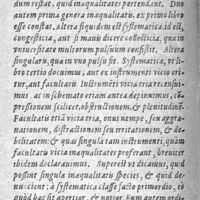 dum restat, quid inæqualitates portendant. Duo
autem prima genera inæqualitatū, ex primo libro
esse constat. Altera siquidem est systematica ad est,
congestitia, aut si mauis dicere collectiua, quæ in
vniuersitate multorum pulsuum consistit. Altera
singularis, quæ in vno pulsu fit. Systematica, vt
libro tertio docuimus, aut ex instrumenti vicio ori
tur, aut facultatis. Instrumēti vicia tria recensui-
mus, ac in schemate etiam antea depinximus, com
pressionem scilicet, obstructionem, & plenitudinē.
Facultatis etiā vicia tria, onus nempe, seu aggra-
uationem, distractionem seu irritationem, & de-
bilitatem: & quas singula tam instrumenti, quàm
facultatis vicia inæqualitates proferant, breuiter
ibidem declarauimus. Superest vt dicamus, quid
possint singula inæqualitatis species, & quid de-
nuncient: à systematica classe facto primordio, eo
quòd hæc sit apertior, & notior. Eum autem ordi